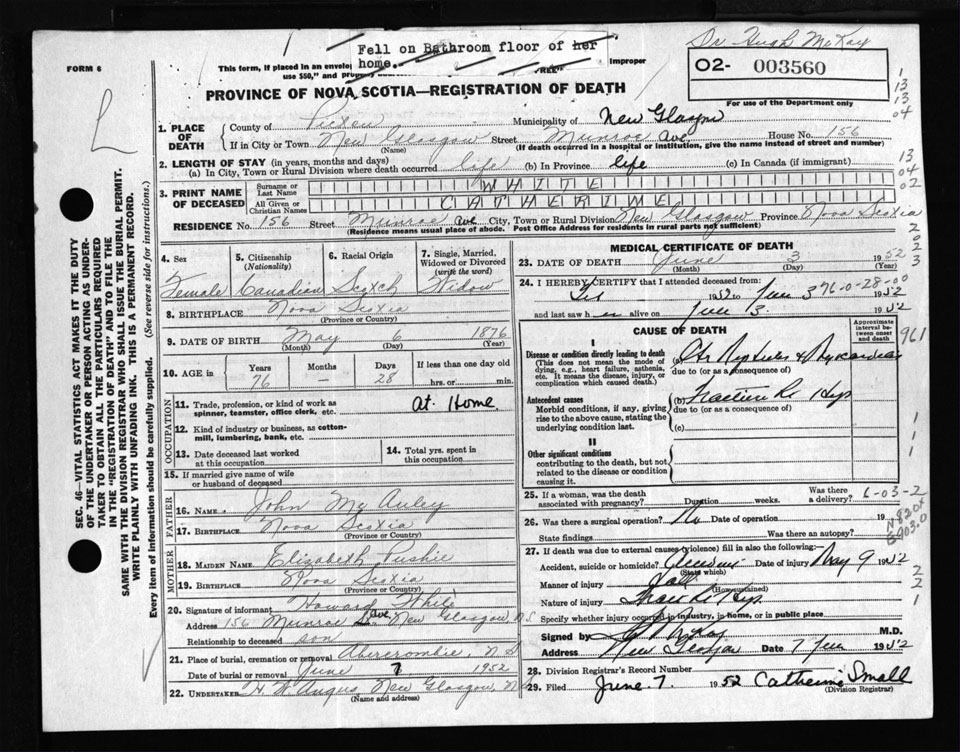 Fell on Bathroom floor of her
home.
Dr Hugh McKay
FORM 6
This form, if placed in an envelope
Improper
use $50," and
02- 003560
PROVINCE OF NOVA SCOTIA—REGISTRATION OF DEATH
For use of the Department only
1. PLACE OF DEATH
County of Pictou Municipality of New Glasgow
If in City or Town New Glasgow Street Munroe Ave. House No. 156
(Name) (If death occurred in a hospital or institution, give the name instead of street and number)
2. LENGTH OF STAY (in years, months and days)
(a) In City, Town or Rural Division where death occurred life (b) In Province life (c) In Canada (if immigrant)
3. PRINT NAME OF DECEASED
Surname or Last Name WHITE
All Given or Christian Names CATHERINE
RESIDENCE No. 156 Street Munroe Ave City, Town or Rural Division New Glasgow Province Nova Scotia
(Residence means usual place of abode. Post Office Address for residents in rural parts not sufficient)
4. Sex Female
5. Citizenship (Nationality) Canadian
6. Racial Origin Scotch
7. Single, Married, Widowed or Divorced (write the word) Widow
8. BIRTHPLACE Nova Scotia
(Province or Country)
9. DATE OF BIRTH May 6 1876
(Month) (Day) (Year)
10. AGE in Years 76 Months — Days 28 If less than one day old
hrs. or min.
OCCUPATION
11. Trade, profession, or kind of work as spinner, teamster, office clerk, etc. At Home
12. Kind of industry or business, as cotton-mill, lumbering, bank, etc.
13. Date deceased last worked at this occupation
14. Total yrs. spent in this occupation
15. If married give name of wife or husband of deceased
FATHER
16. Name John McAuley
17. Birthplace Nova Scotia
(Province or Country)
MOTHER
18. Maiden Name Elizabeth
19. Birthplace Nova Scotia
(Province or Country)
20. Signature of informant Howard White
Address 156 Munroe Ave, New Glasgow N.S
Relationship to deceased son
21. Place of burial, cremation or removal Abercrombie, N S
Date of burial or removal June 7 1952
22. UNDERTAKER H. W. Angus, New Glasgow, N
(Name and address)
MEDICAL CERTIFICATE OF DEATH
23. DATE OF DEATH June 3 1952
(Month) (Day) (Year)
24. I HEREBY CERTIFY that I attended deceased from:
1952 to Jun 3 1952
76-0-28-00
and last saw h er alive on Jun 3 1952
CAUSE OF DEATH
Approximate interval between onset and death
961
I
Disease or condition directly leading to death (a)
(This does not mean the mode of dying, e.g., heart failure, asthenia, etc. It means the disease, injury, or complication which caused death.)
due to (or as a consequence of)
Antecedent causes (b) Fracture Rt Hip
Morbid conditions, if any, giving rise to the above cause, stating the underlying condition last.
due to (or as a consequence of)
(c)
II
Other significant conditions
contributing to the death, but not related to the disease or condition causing it.
25. If a woman, was the death associated with pregnancy? Duration weeks. Was there a delivery?
6-03-2
26. Was there a surgical operation? No Date of operation 19
State findings Was there an autopsy?
27. If death was due to external causes (violence) fill in also the following:—
Accident, suicide or homicide? Date of injury May 9 1952
(State which)
Manner of injury Fall
(How sustained)
Nature of injury Fract Rt Hip
Specify whether injury occurred in industry, in home, or in public place
Signed by M.D.
Address New Glasgow Date 7 Jun 1952
28. Division Registrar's Record Number
29. Filed June 7. 1952 Catherine Small
(Division Registrar)
SEC. 46—VITAL STATISTICS ACT MAKES IT THE DUTY
OF THE UNDERTAKER OR PERSON ACTING AS UNDER-
TAKER TO OBTAIN ALL THE PARTICULARS REQUIRED
IN THE "REGISTRATION OF DEATH" AND TO FILE THE
SAME WITH THE DIVISION REGISTRAR WHO SHALL ISSUE THE BURIAL PERMIT.
WRITE PLAINLY WITH UNFADING INK. THIS IS A PERMANENT RECORD.
Every item of information should be carefully supplied. (See reverse side for instructions.)